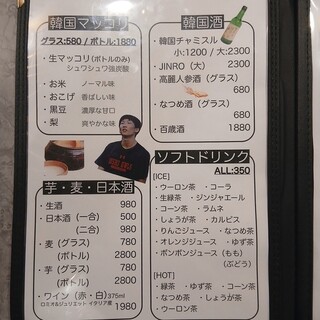 韓国マッコリ
グラス:580 / ボトル:1880
・生マッコリ(ボトルのみ)
シュワシュワ強炭酸
・お米 ノーマル味
・おこげ 香ばしい味
・黒豆 濃厚な甘口
・梨 爽やかな味
芋・麦・日本酒
・生酒 980
・日本酒(一合) 500
(二合) 980
・麦(グラス) 780
(ボトル) 2800
・芋(グラス) 780
(ボトル) 2800
・ワイン(赤・白)375ml
ロミオ&ジュリエット イタリア産 1980
韓国酒
・韓国チャミスル
小:1200 / 大:2300
・JINRO(大) 2300
・高麗人参酒(グラス)
680
・なつめ酒(グラス)
680
・百歳酒 1880
ソフトドリンク
ALL:350
[ICE]
・ウーロン茶 ・コーラ
・生緑茶 ・ジンジャエール
・コーン茶 ・ラムネ
・しょうが茶 ・カルピス
・りんごジュース ・なつめ茶
・オレンジジュース ・ゆず茶
・ポンポンジュース(もも)
(ぶどう)
[HOT]
・緑茶 ・ゆず茶 ・コーン茶
・なつめ茶 ・しょうが茶
・ウーロン茶